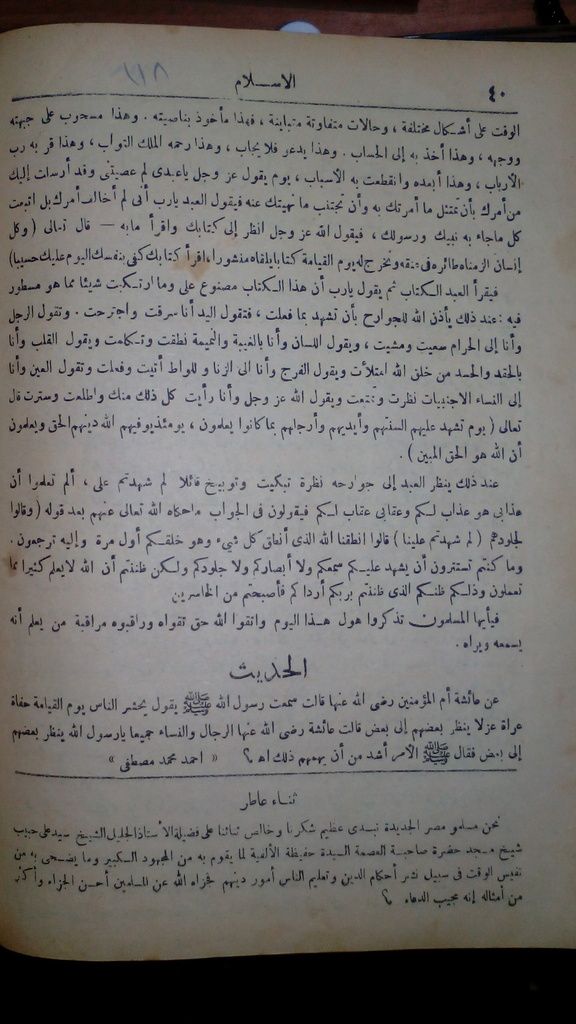 ٤٠
الاسلام
الوقت على أشكال مختلفة ، وحالات متفاوتة متباينة ، فهذا مأخوذ بناصيته . وهذا مسحوب على جبهته
ووجهه ، وهذا أخذ به إلى الحساب . وهذا يدعو فلا يجاب ، وهذا رحمه الملك التواب ، وهذا قر به رب
الأرباب ، وهذا أبعده وانقطعت به الأسباب ، يوم يقول عز وجل ياعبدى لم عصيتنى وقد أرسلت إليك
من أمرك بأن تمتثل ما أمرتك به وأن تجتنب ما نهيتك عنه فيقول العبد يارب أنى لم أخالف أمرك بل اتبعت
كل ماجاء به نبيك ورسولك ، فيقول الله عز وجل انظر إلى كتابك واقرأ مابه — قال تعالى ( وكل
إنسان ألزمناه طائره فى عنقه ونخرج له يوم القيامة كتابا يلقاه منشورا ، اقرأ كتابك كفى بنفسك اليوم عليك حسيبا )
فيقرأ العبد الكتاب ثم يقول يارب أن هذا الكتاب مصنوع على وما ارتكبت شيئا مما هو مسطور
فيه : عند ذلك يأذن الله للجوارح بأن تشهد بما فعلت ، فتقول اليد أنا سرقت واجترحت . وتقول الرجل
وأنا إلى الحرام سعيت ومشيت ، ويقول اللسان وأنا بالغيبة والنميمة نطقت وتكلمت ويقول القلب وأنا
بالحقد والحسد من خلق الله امتلأت ويقول الفرج وأنا الى الزنا و للواط أتيت وفعلت وتقول العين وأنا
إلى النساء الاجنبيات نظرت وتمتعت ويقول الله عز وجل وأنا رأيت كل ذلك منك واطلعت وسترت قال
تعالى ( يوم تشهد عليهم السنتهم وأيديهم وأرجلهم بما كانوا يعملون ، يومئذ يوفيهم الله دينهم الحق ويعلمون
أن الله هو الحق المبين ) .
عند ذلك ينظر العبد إلى جوارحه نظرة تبكيت وتوبيخ قائلا لم شهدتم على ، ألم تعلموا أن
عذابى هو عذاب لكم وعقابى عقاب لكم فيقولون فى الجواب ماحكاه الله تعالى عنهم بعد قوله ( وقالوا
لجلودهم ( لم شهدتم علينا ) قالوا انطقنا الله الذى أنطق كل شىء وهو خلقكم أول مرة وإليه ترجعون .
وما كنتم تستترون أن يشهد عليكم سمعكم ولا أبصاركم ولا جلودكم ولكن ظننتم أن الله لا يعلم كثيرا مما
تعملون وذلكم ظنكم الذى ظننتم بربكم أرداكم فأصبحتم من الخاسرين
فيأيها المسلمون تذكروا هول هذا اليوم واتقوا الله حق تقواه وراقبوه مراقبة من يعلم أنه
يسمعه ويراه .
الحديث
عن عائشة أم المؤمنين رضى الله عنها قالت سمعت رسول الله ﷺ يقول يحشر الناس يوم القيامة حفاة
عراة عزلا ينظر بعضهم إلى بعض قالت عائشة رضى الله عنها الرجال والنساء جميعا يارسول الله ينظر بعضهم
إلى بعض فقال ﷺ الأمر أشد من أن يهمهم ذلك اهـ « احمد محمد مصطفى »
ثناء عاطر
نحن مسلمو مصر الجديدة نبدى عظيم شكرنا وخالص ثنائنا على فضيلة الأستاذ الجليل الشيخ سيد على حبيب
شيخ مسجد حضرة صاحبة العصمة السيدة حفيظة الألفية لما يقوم به من المجهود الكبير وما يضحى به من
نفيس الوقت فى سبيل نشر أحكام الدين وتعليم الناس أمور دينهم فجزاه الله عن المسلمين أحسن الجزاء وأكثر
من أمثاله إنه مجيب الدعاء